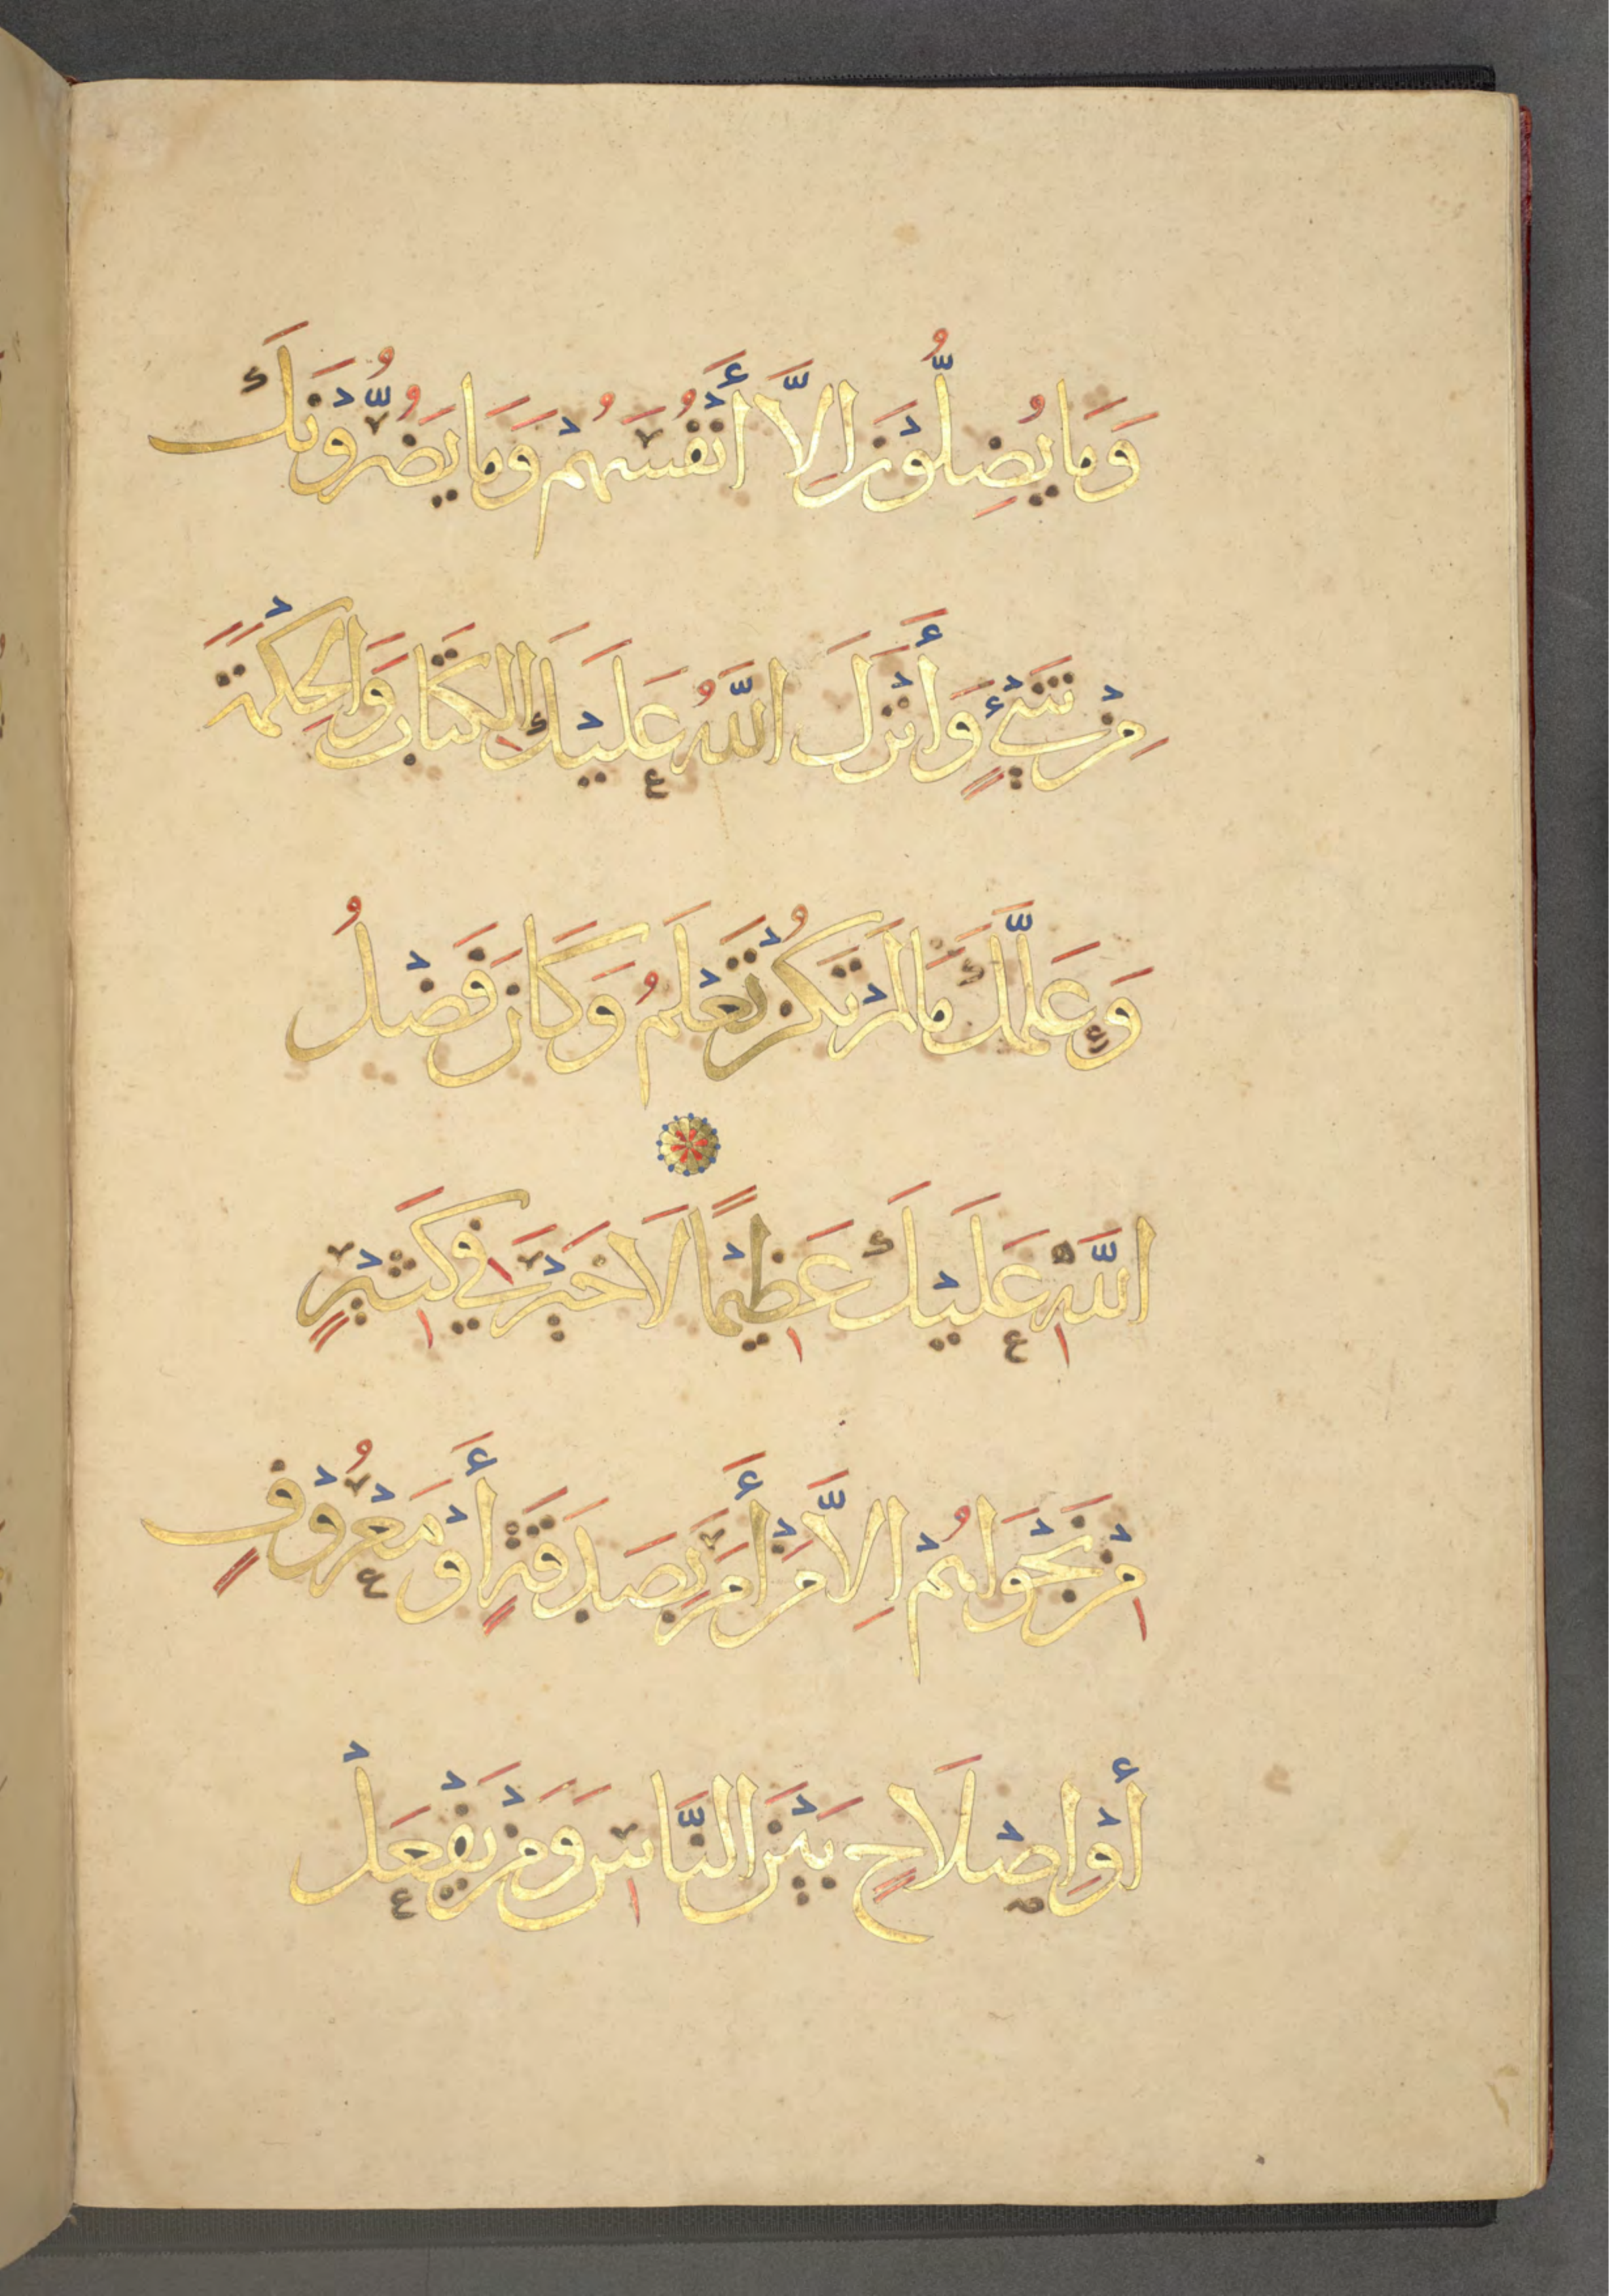 وَمَا يُضِلُّوْنَ اِلَّا أَنْفُسَهُمْ وَمَا يَضُرُّوْنَكَ
مِنْ شَيْءٍ وَأَنْزَلَ اللَّهُ عَلَيْكَ الْكِتَابَ وَالْحِكْمَةَ
وَعَلَّمَكَ مَا لَمْ تَكُنْ تَعْلَمُ وَكَانَ فَضْلُ
اللَّهِ عَلَيْكَ عَظِيْمًا لَا خَيْرَ فِي كَثِيْرٍ
مِنْ نَجْوَاهُمْ اِلَّا مَنْ أَمَرَ بِصَدَقَةٍ أَوْ مَعْرُوْفٍ
أَوْ اِصْلَاحٍ بَيْنَ النَّاسِ وَمَنْ يَفْعَلْ